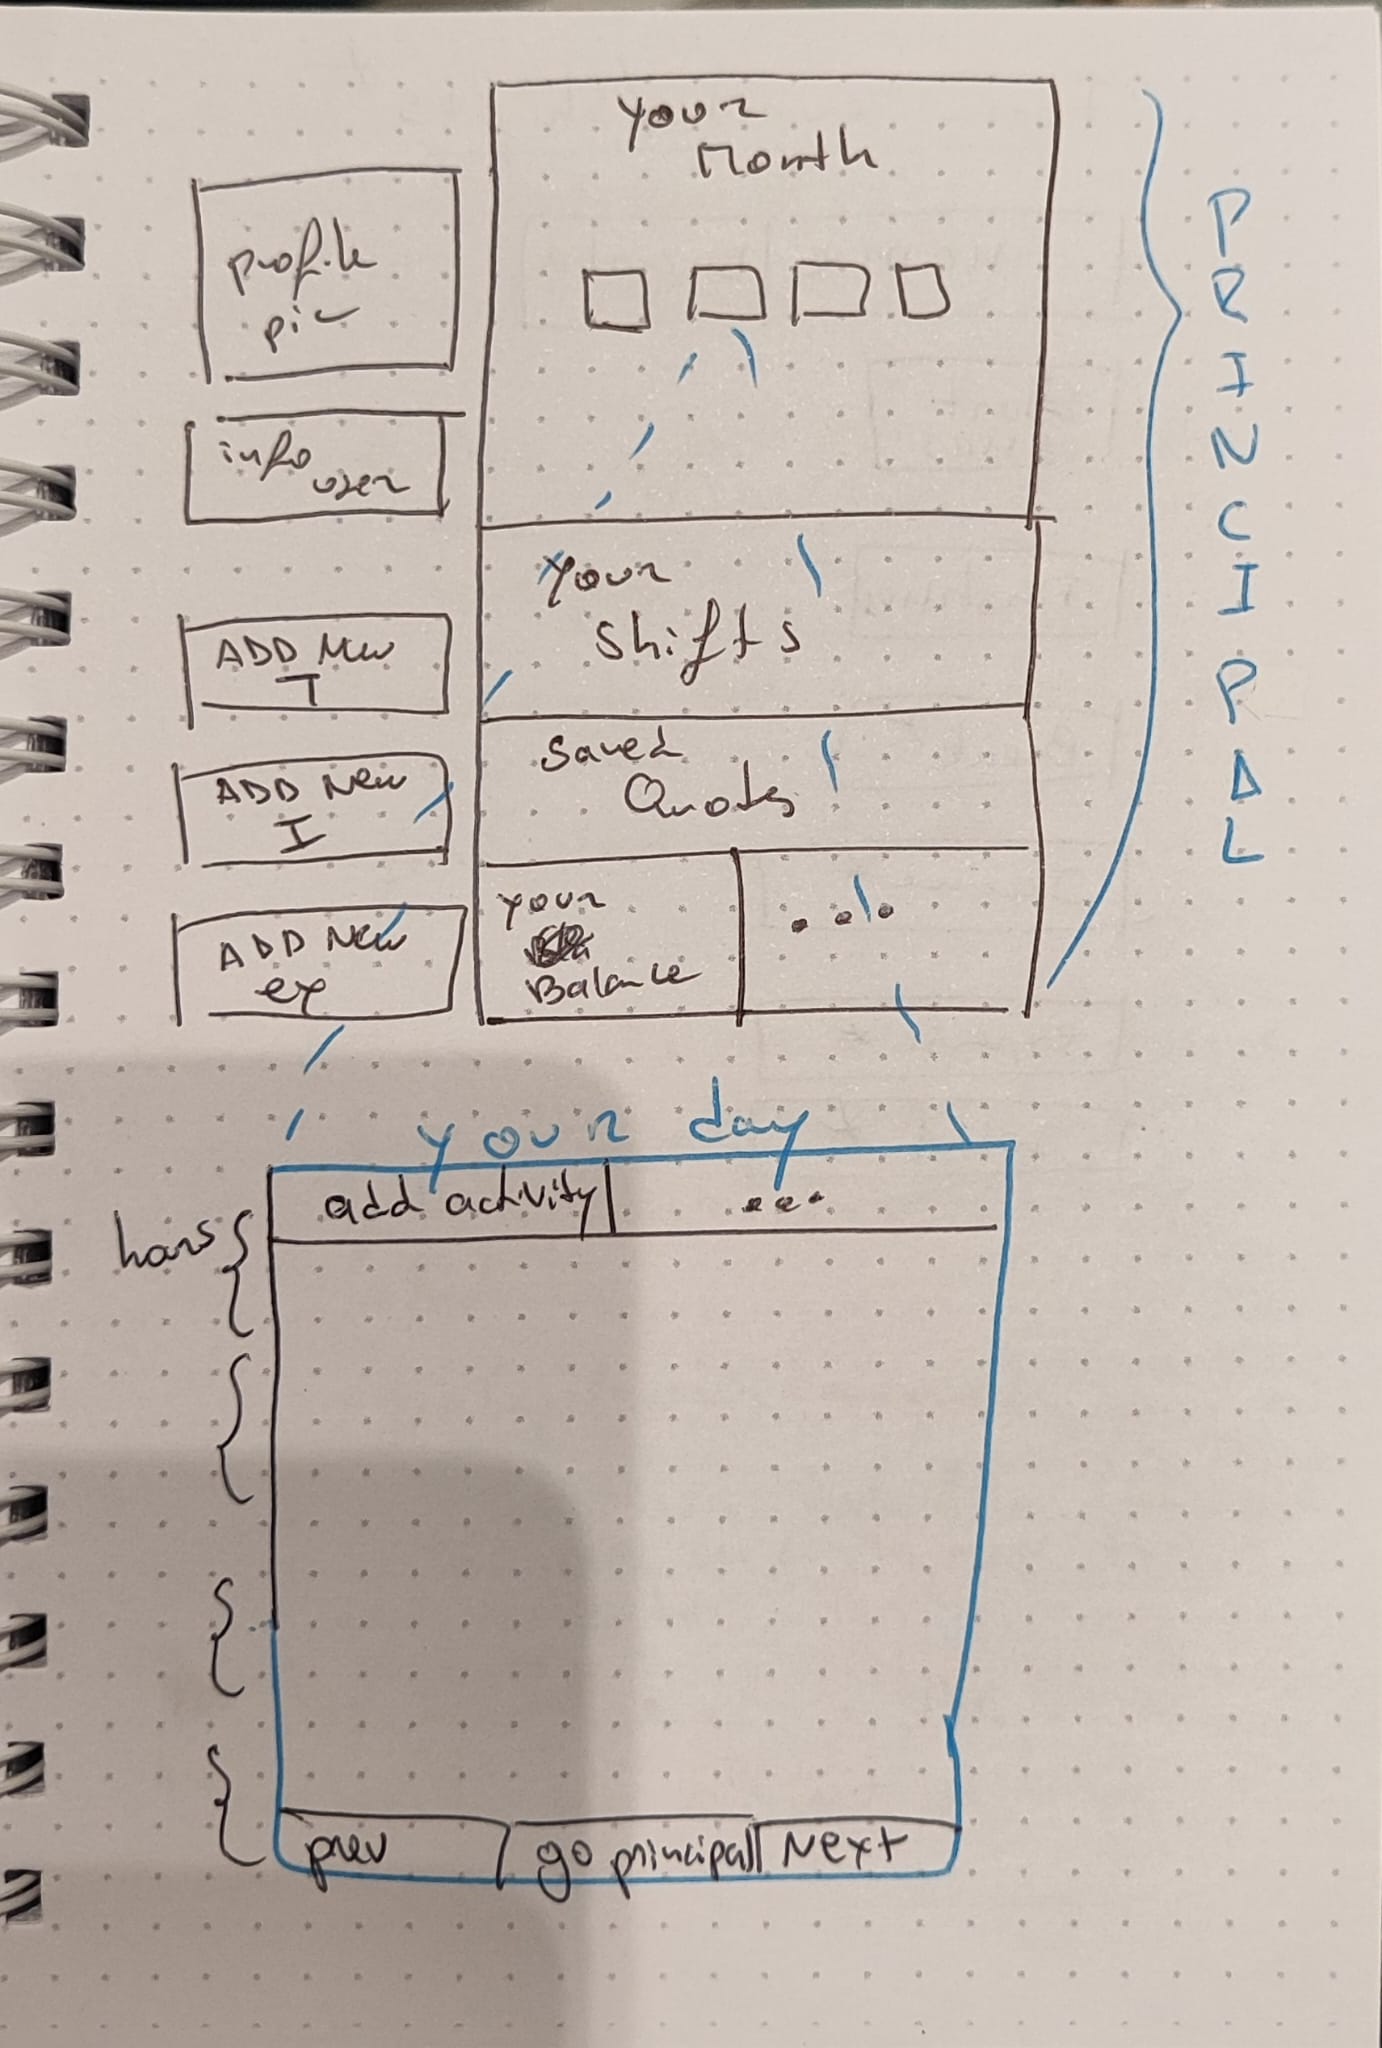 your
Month
profile
pic
info
user
ADD New
T
ADD New
I
ADD New
ex
your
shifts
Saved
Quotes
your
Balance
...
PRINCIPAL
your day
add activity
...
prev
go principal
Next